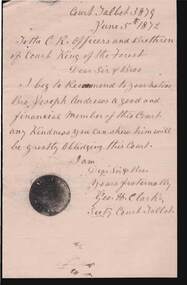 Court Talbot 3879
June 5th 1872
To the C.R. Officers and Brethren
of Court King of the Forest
Dear Sir & Bros
I beg to Recommend to your notice
Bro. Joseph Andrews a good and
financial Member of this Court
any Kindness you can shew him will
be greatly Obliedging this Court.
I am
Dear Sir & Bros
Yours fraternally
Geo. H. Clark,
Secty Court Talbot.